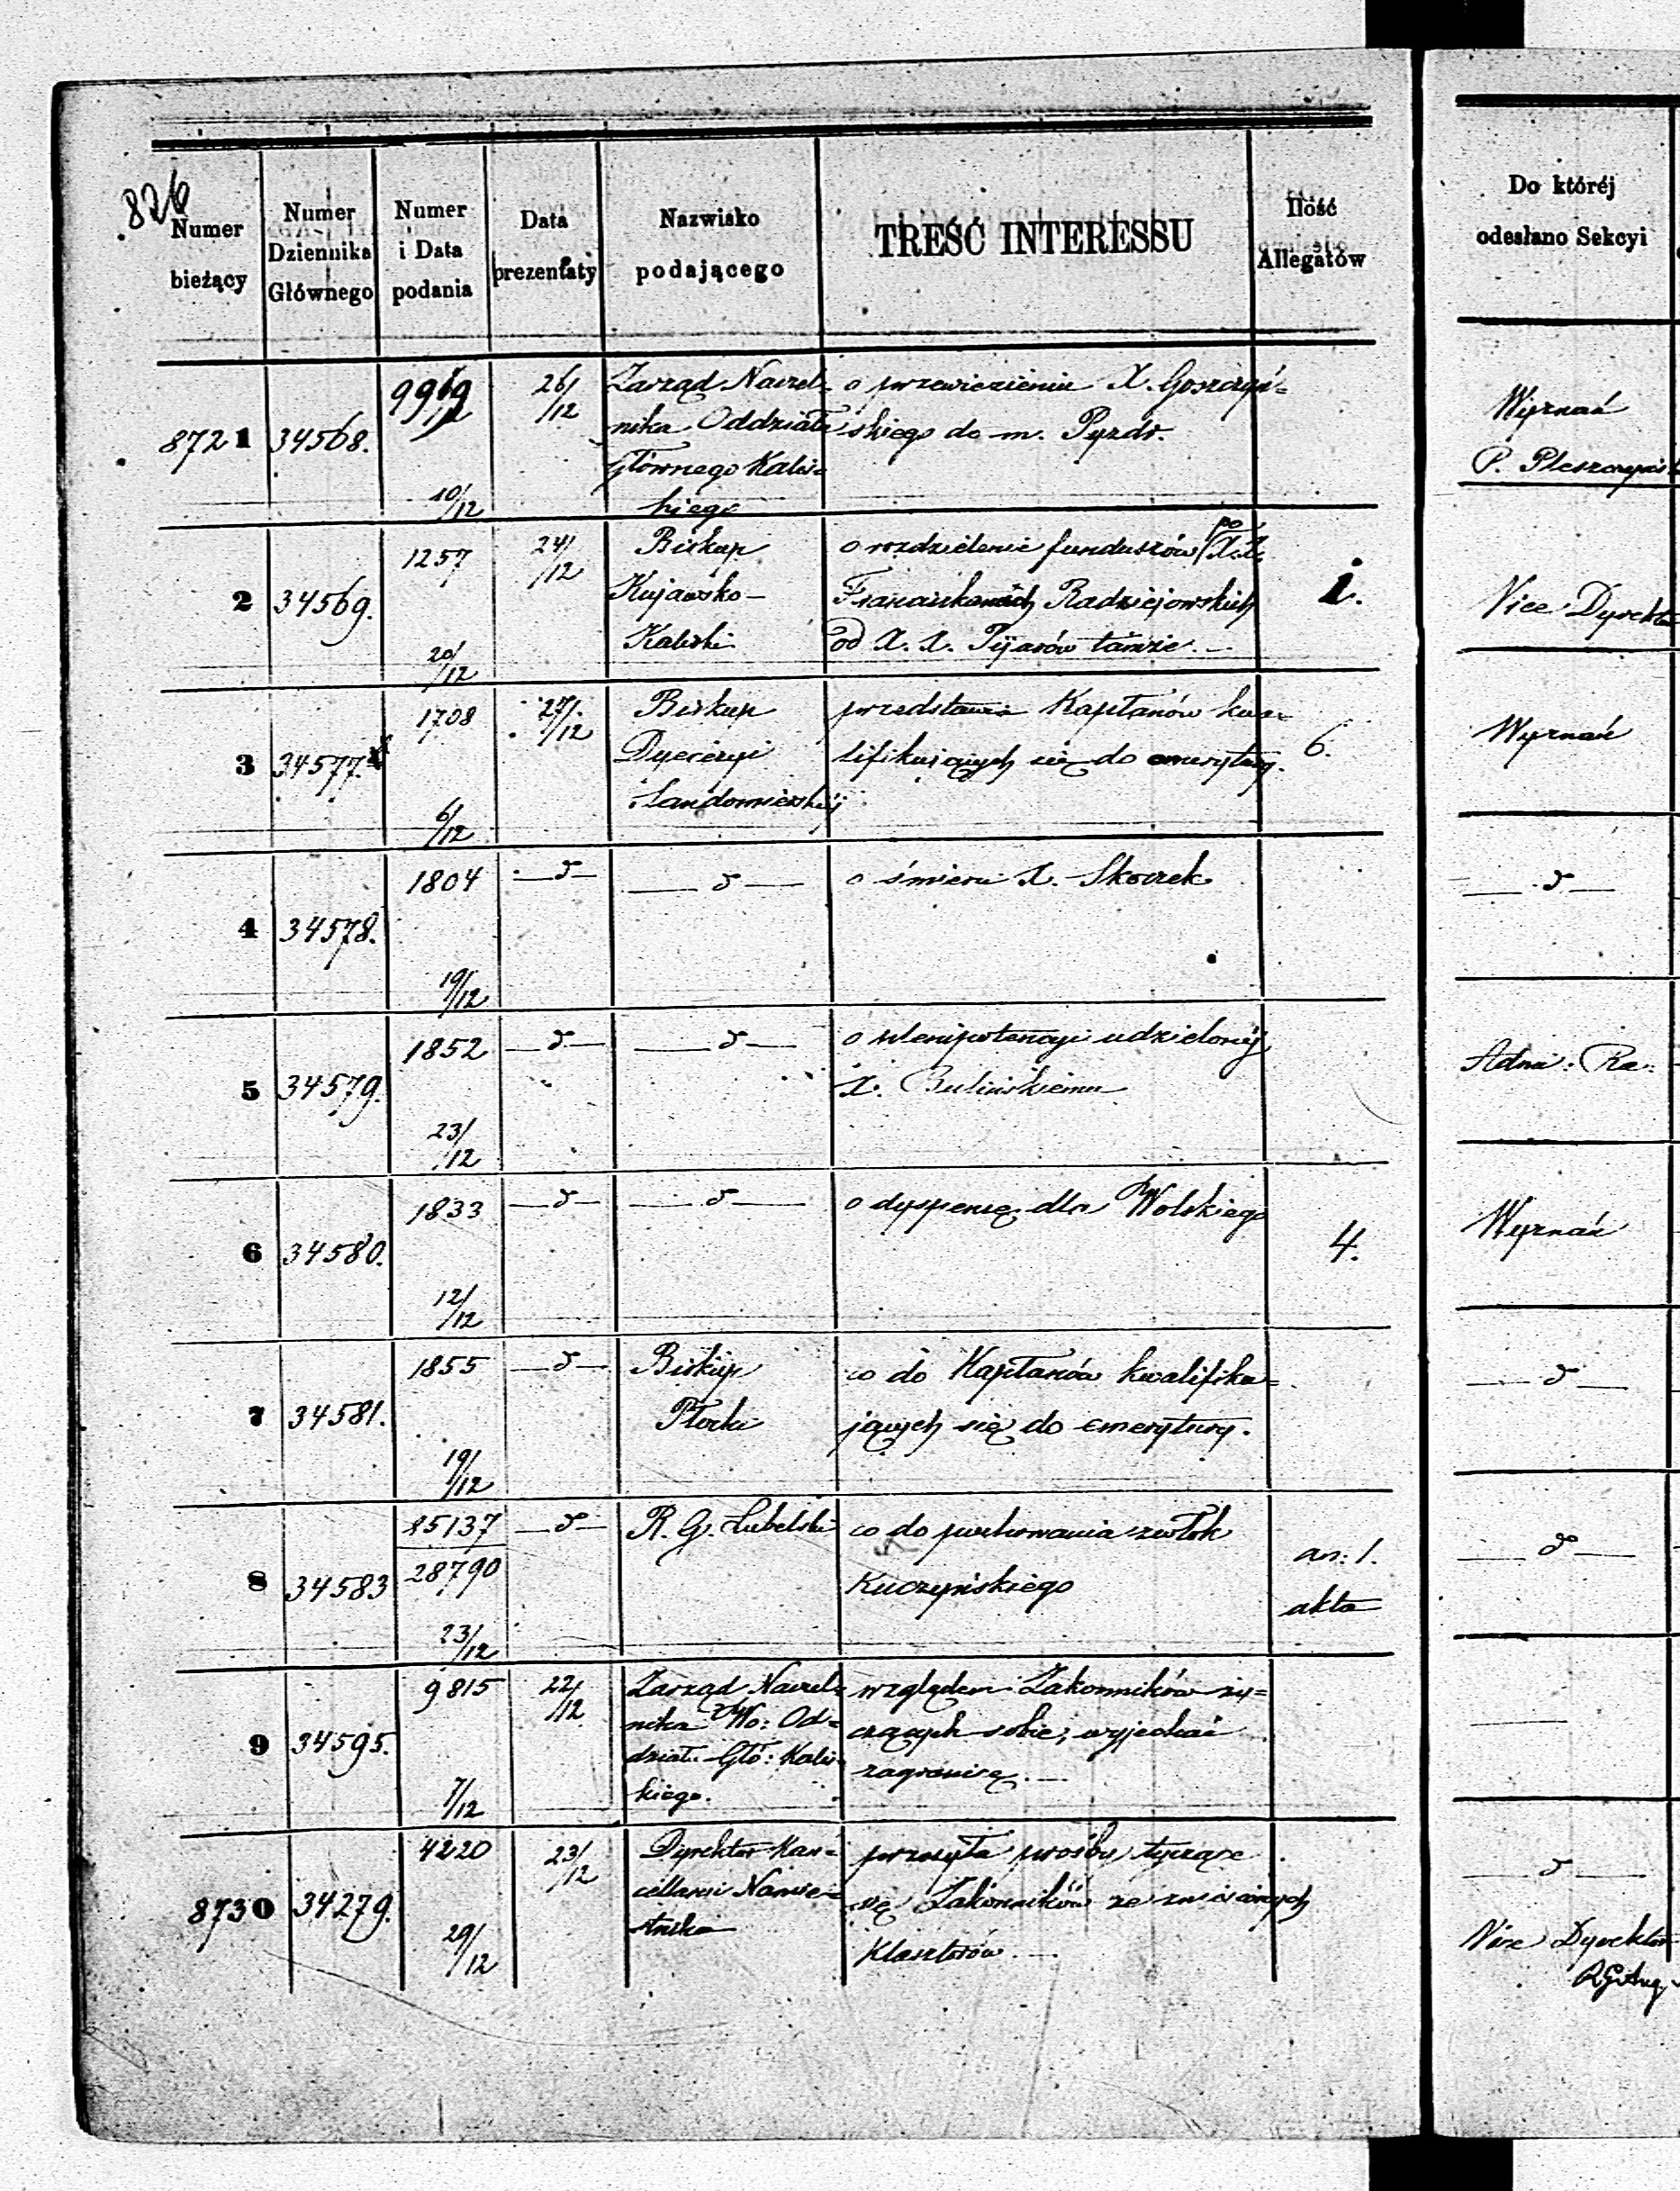 826
Numer bieżący
Numer Dziennika Głównego
Numer i Data podania
Data prezentaty
Nazwisko podającego
TREŚĆ INTERESSU
Ilość Allegatów
Do któréj odesłano Sekcyi
8721 34568. 9969 10/12 26/12
Zarząd Naczel=
nika Oddziału
Głównego Kalis=
kiego
o przewiezieniu X. Goszczyń=
skiego do m. Pyzdr.
Wyznań
P. Pleszczyński
2 34569. 1257 20/12 24/12
Biskup
Kujawsko-
Kaliski
o rozdzielenie funduszów po X.X.
Franciszkanach Radziejowskich
od X. X. Pijarów tamże. —
1.
Vice Dyrektor
3 34577. 1708 6/12 27/12
Biskup
Dyecezyi
Sandomierskiéj
przedstawia Kapłanów kwa=
lifikujących się do emerytury.
6.
Wyznań
4 34578. 1804 19/12 —d— —d—
o śmierci X. Skorzek
—d—
5 34579. 1852 23/12 —d— —d—
o plenipotencyi udzielonéj
X. Bulińskiemu
Adm: Ra:
6 34580. 1833 12/12 —d— —d—
o dyspensę dla Wolskiego
4.
Wyznań
7 34581. 1855 19/12 —d—
Biskup
Płocki
co do Kapłanów kwalifiku=
jących się do emerytury.
—d—
8 34583 85137 28790 23/12 —d—
R. G. Lubelski
co do pochowania zwłok
Kuczyńskiego
an: 1.
akta
—d—
9 34595. 9815 7/12 22/12
Zarząd Naczel=
nika Wo: Od=
dział. Głó: Kalis=
kiego.
względem Zakonników ży=
czących sobie, wyjechać
zagranicę. —
8730 34279. 4220 29/12 23/12
Dyrektor Kan=
cellarii Namie=
stnika
przesyła prośby tyczące
się Zakonników ze zniesionych
Klasztorów. —
—d—
Vice Dyrektor